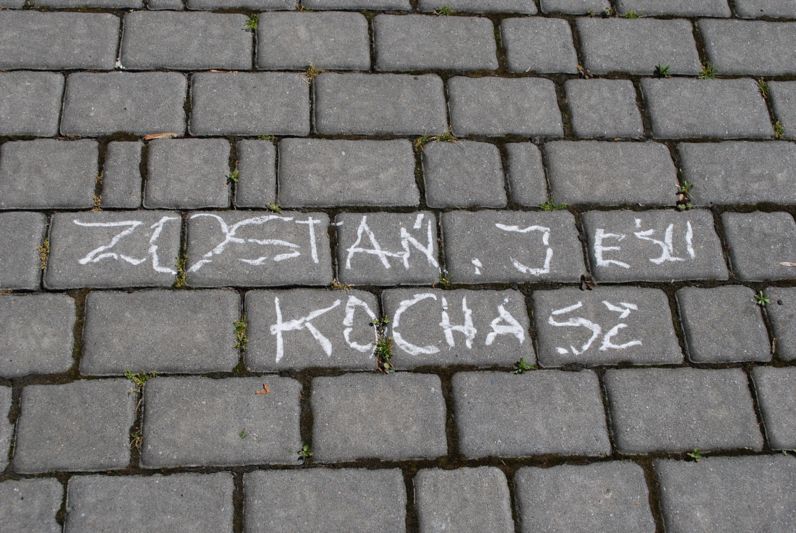 ZOSTAŃ. JEŚLI
KOCHASZ